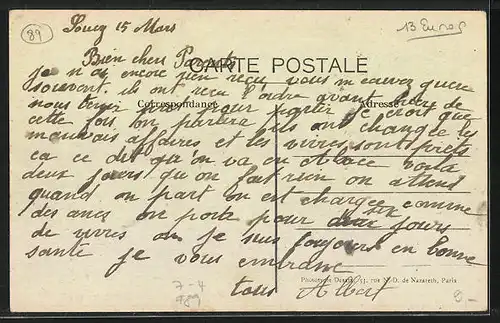 89
Soucy 15 Mars
13 Euros
Bien chers Parents
CARTE POSTALE
je n'ai encore rien reçu vous m'ecrivez guere
souvent. ils ont reçu l'ordre avant hier de
nous tenir prets pour partir je crois que
Correspondance
Adresse
cette fois on partira ils ont changée les
mauvais affaires et les vivres sont prets
ca ce dit qu'on va en Alsace voila
deux jours qu'on fait rien on attend
quand on part on est chargée comme
des anes on porte pour six jours
de vivres on je suis toujours en bonne
santé je vous embrasse
tous Albert
Phototypie Desaix, 53, rue N.-D. de Nazareth, Paris
7-4